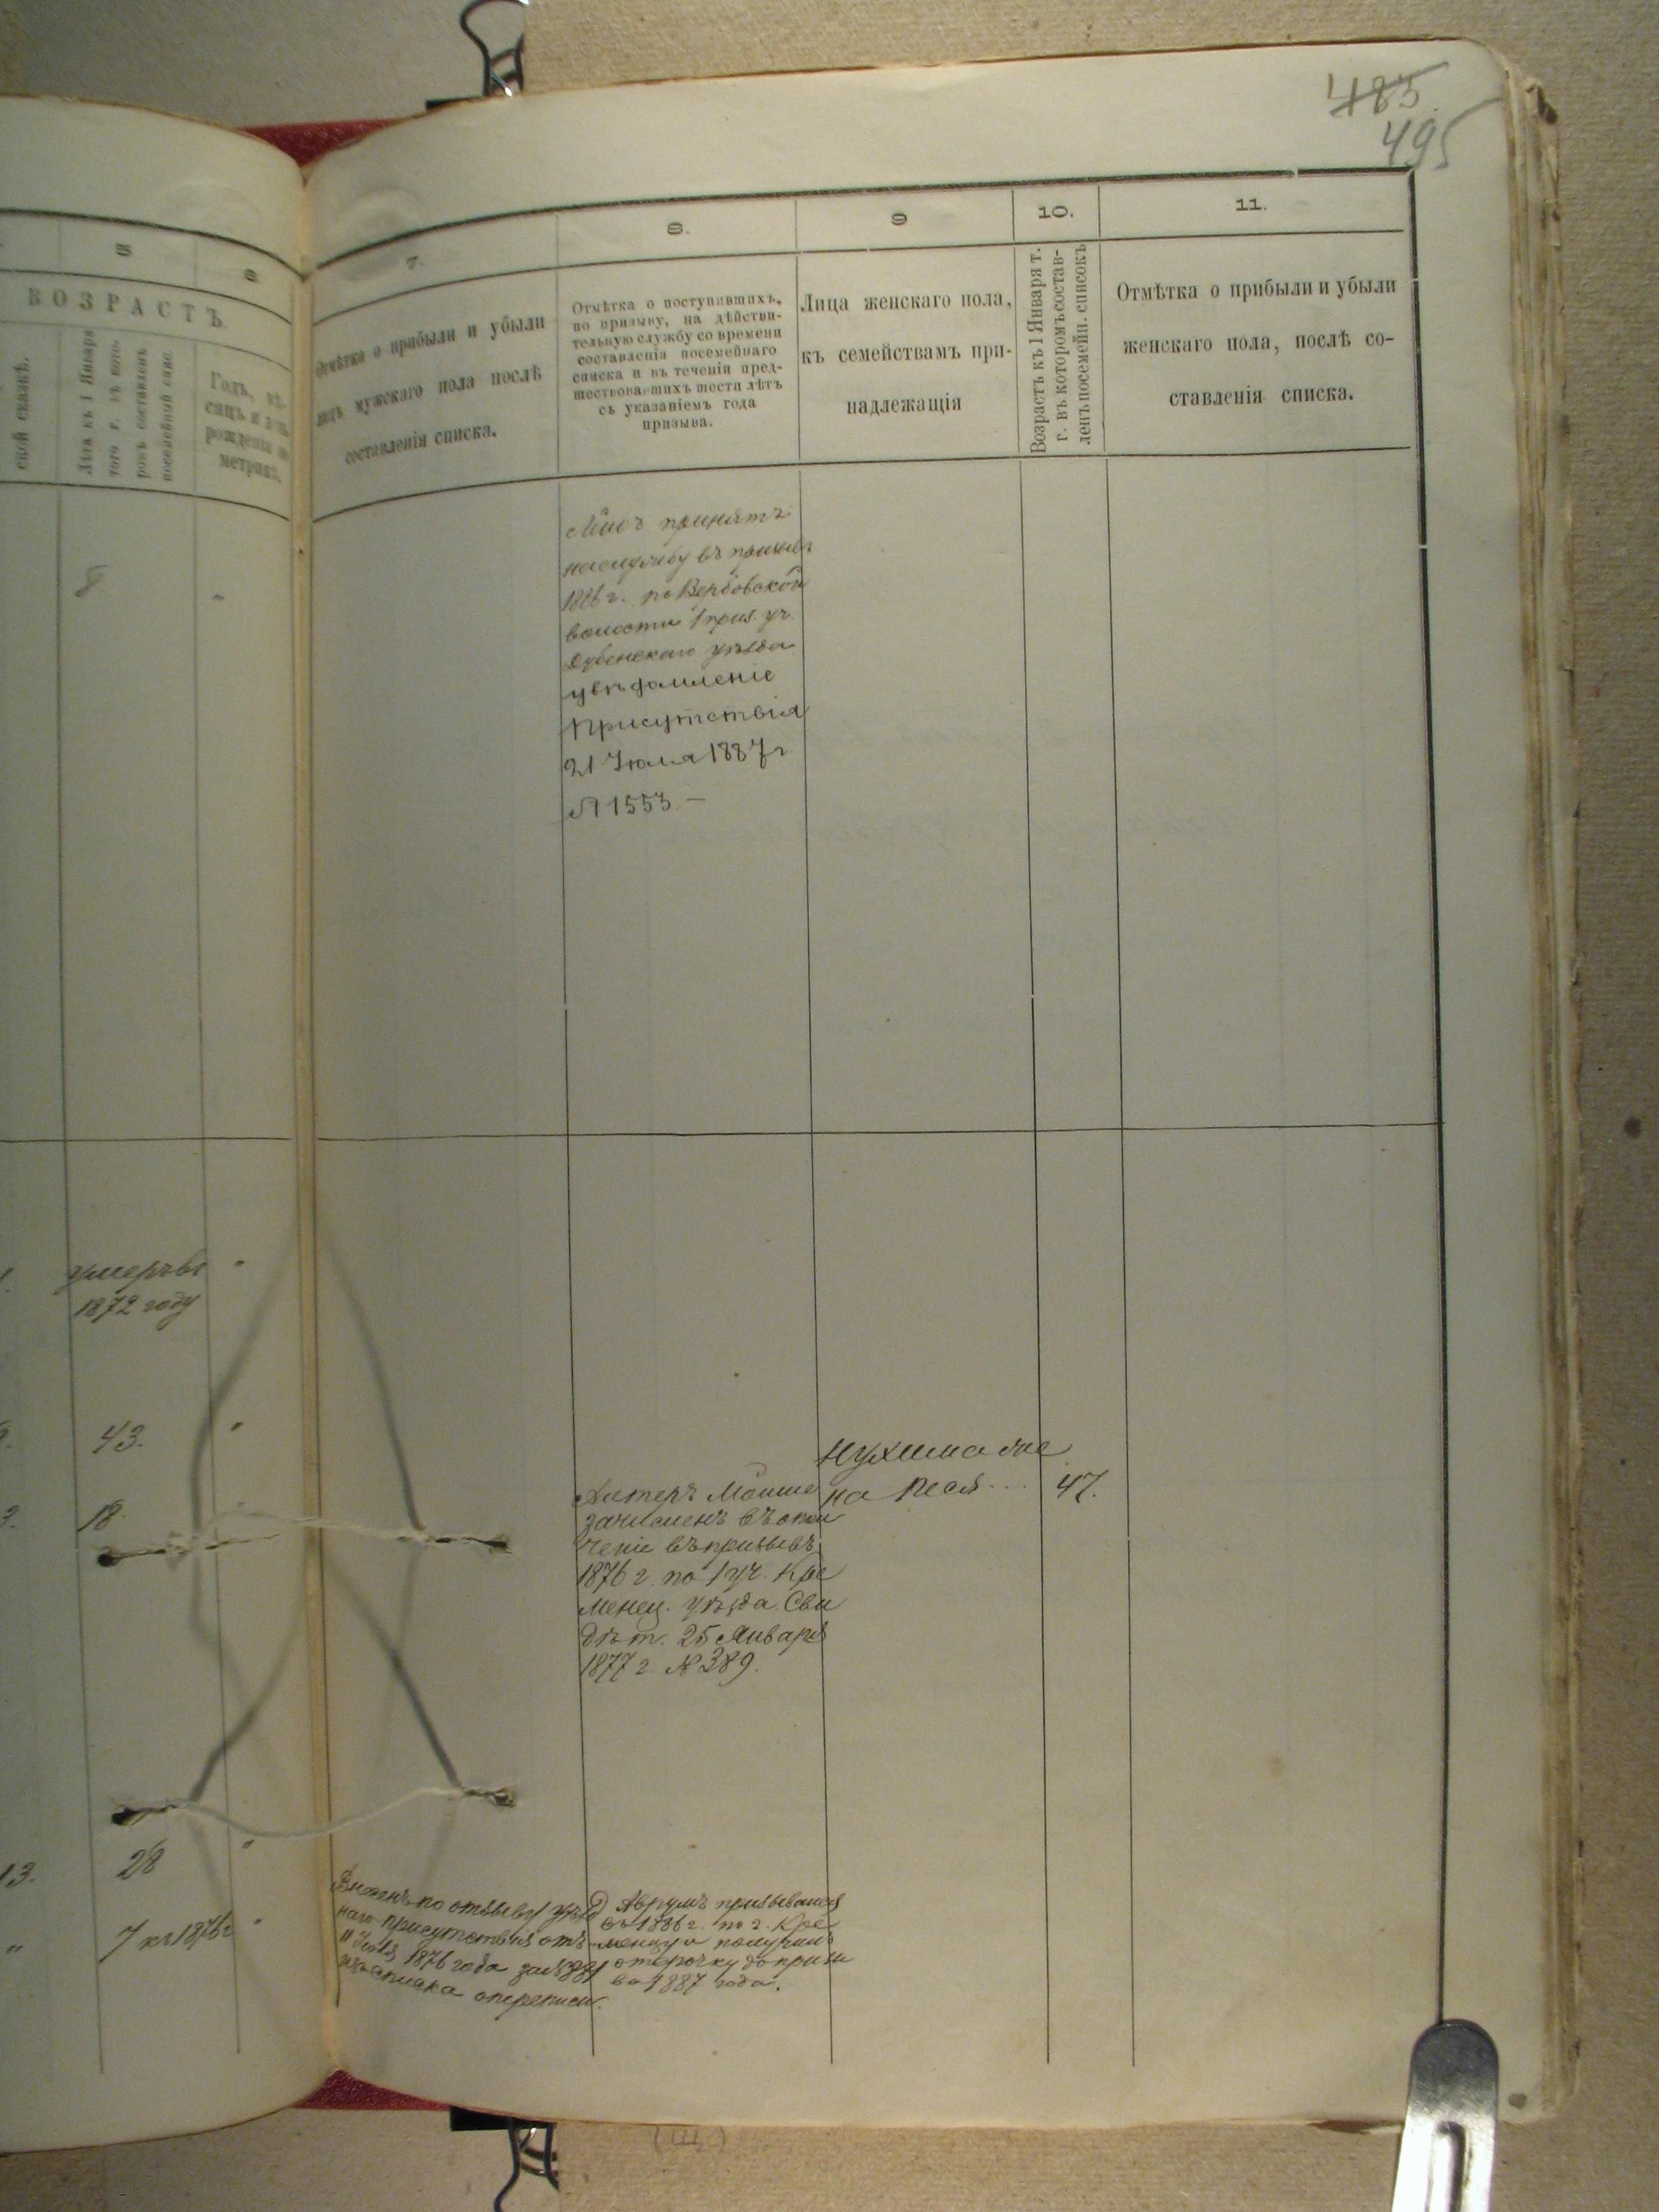 485
495
5
6.
7.
8.
9
10.
11.
ВОЗРАСТЪ
ской сказкѣ.
Лѣта къ 1 Января
того г. въ кото-
ромъ составленъ
посемейный спис.
Годъ, мѣ-
сяцъ и день
рожденія по
метрикѣ.
Отмѣтка о прибыли и убыли
лицъ мужскаго пола послѣ
составленія списка.
Отмѣтка о поступившихъ,
по призыву, на дѣйстви-
тельную службу со времени
составленія посемейнаго
списка и въ теченіи пред-
шествовавшихъ шести лѣтъ
съ указаніемъ года
призыва.
Лица женскаго пола,
къ семействамъ при-
надлежащія
Возрастъ къ 1 Января т.
г. въ которомъ состав-
ленъ посемейн. списокъ
Отмѣтка о прибыли и убыли
женскаго пола, послѣ со-
ставленія списка.
8
принятъ
на службу въ призывъ
1886 г. по Вербовской
волости 1 приз. уч.
Дубенскаго уѣзда
увѣдомленіе
Присутствія
21 Іюля 1887 г
№ 1553 —
умеръ въ
1872 году
43.
18
Алтеръ Мошце
зачисленъ въ опол
ченіе въ призывъ
1876 г. по 1 уч. Кре
менец. уѣзда. Сви
дѣт. 25 Января
1877 г. № 389.
Нухима жe
на Песя....
47.
13.
28
7 къ 1876 г
Внесенъ по отзыву уѣзд
наго присутствія отъ
11 Іюля 1876 года за №
изъ списка оперепис.
Аврумъ призывался
въ 1886 г. по г. Кре
менцу и получилъ
отсрочку до призы
ва 1887 года.